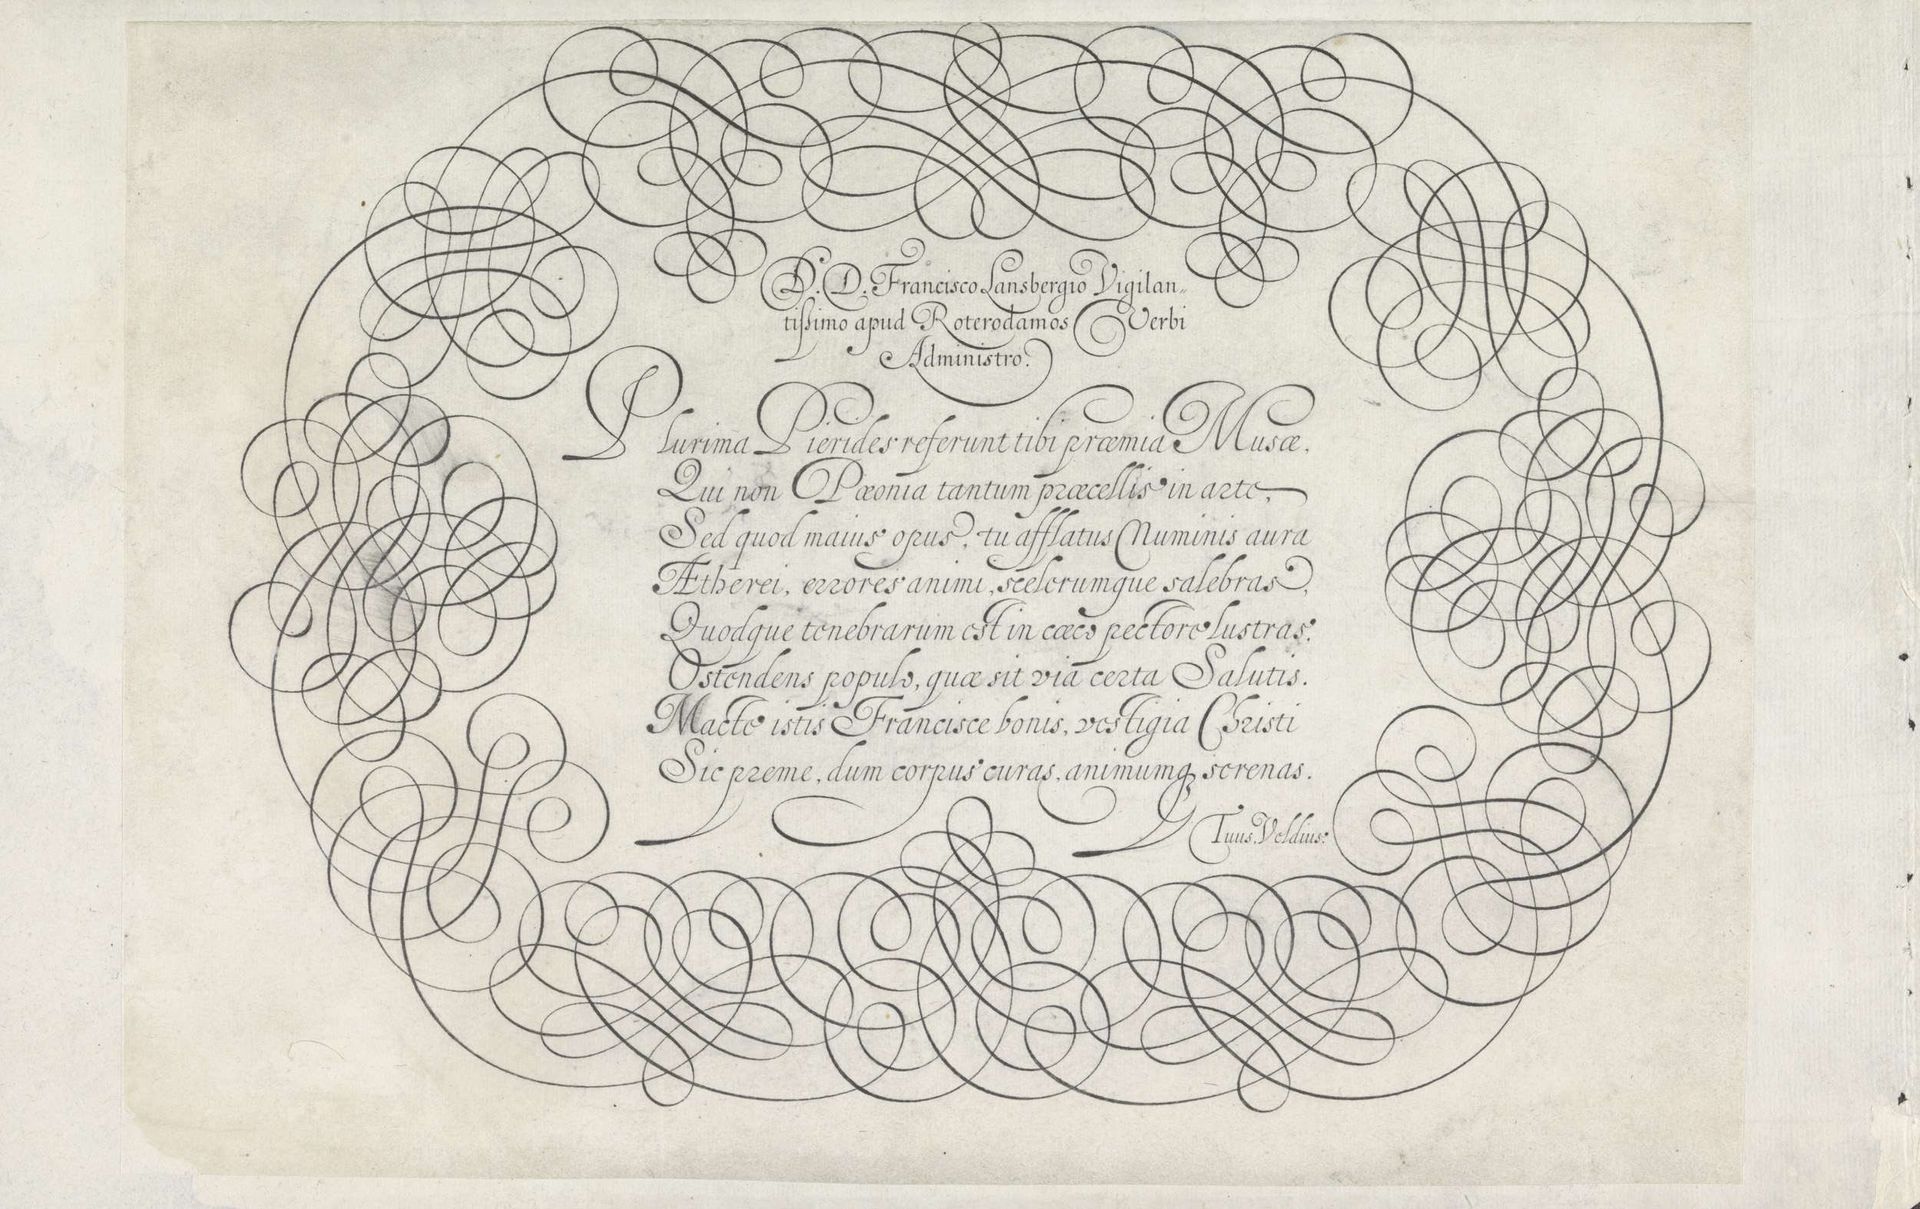 D. D. Francisco Lansbergio Vigilan„
tißimo apud Roterodamos Verbi
Administro.
Plurima Pierides referunt tibi præmia Musæ,
Qui non Pæonia tantum præcellis in arte,
Sed quod maius opus, tu afflatus Numinis aura
Ætherei, errores animi, scelerumque salebras,
Quodque tenebrarum est in cæco pectore lustras:
Ostendens populo, quæ sit via certa Salutis.
Macte istis Francisce bonis, vestigia Christi
Sic preme, dum corpus curas, animumq₃ serenas.
Tuus Veldius.